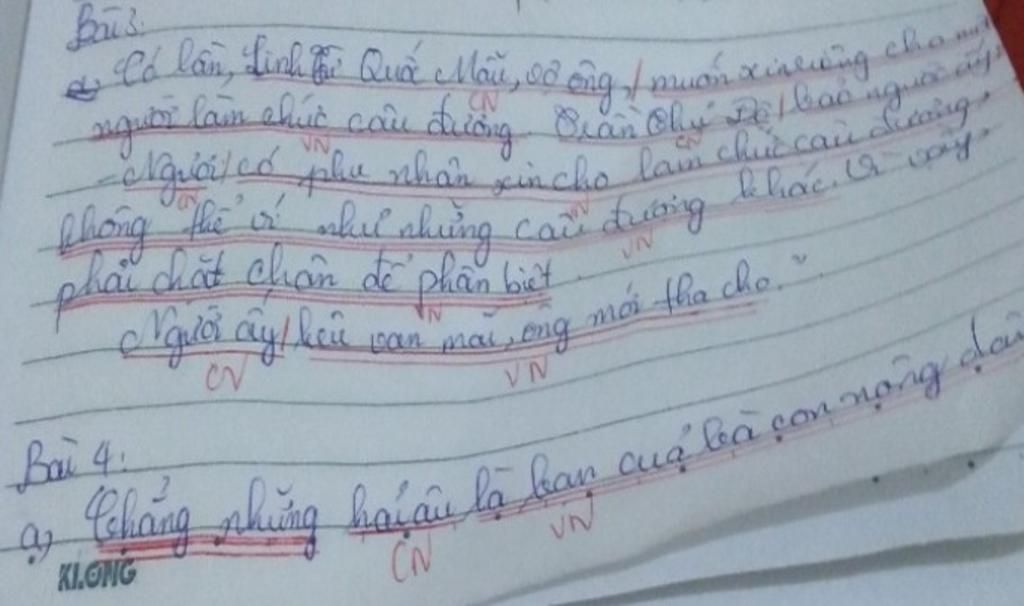 Bài 3.
a, Có lần, Linh Từ Quốc Mẫu, vợ ông, / muốn xin riêng cho một
CN
người làm chức câu đương. Trần Thủ Độ / bảo người ấy:
VN CN
- Ngươi / có phu nhân xin cho làm chức câu đương,
CN VN
không thể ví như những câu đương khác. Vì vậy
VN
phải chặt chân để phân biệt
VN
Người ấy / kêu van mãi, ông mới tha cho."
CN VN
Bài 4:
a, Chẳng những hải âu là bạn của bà con nông dân
CN VN
KLONG